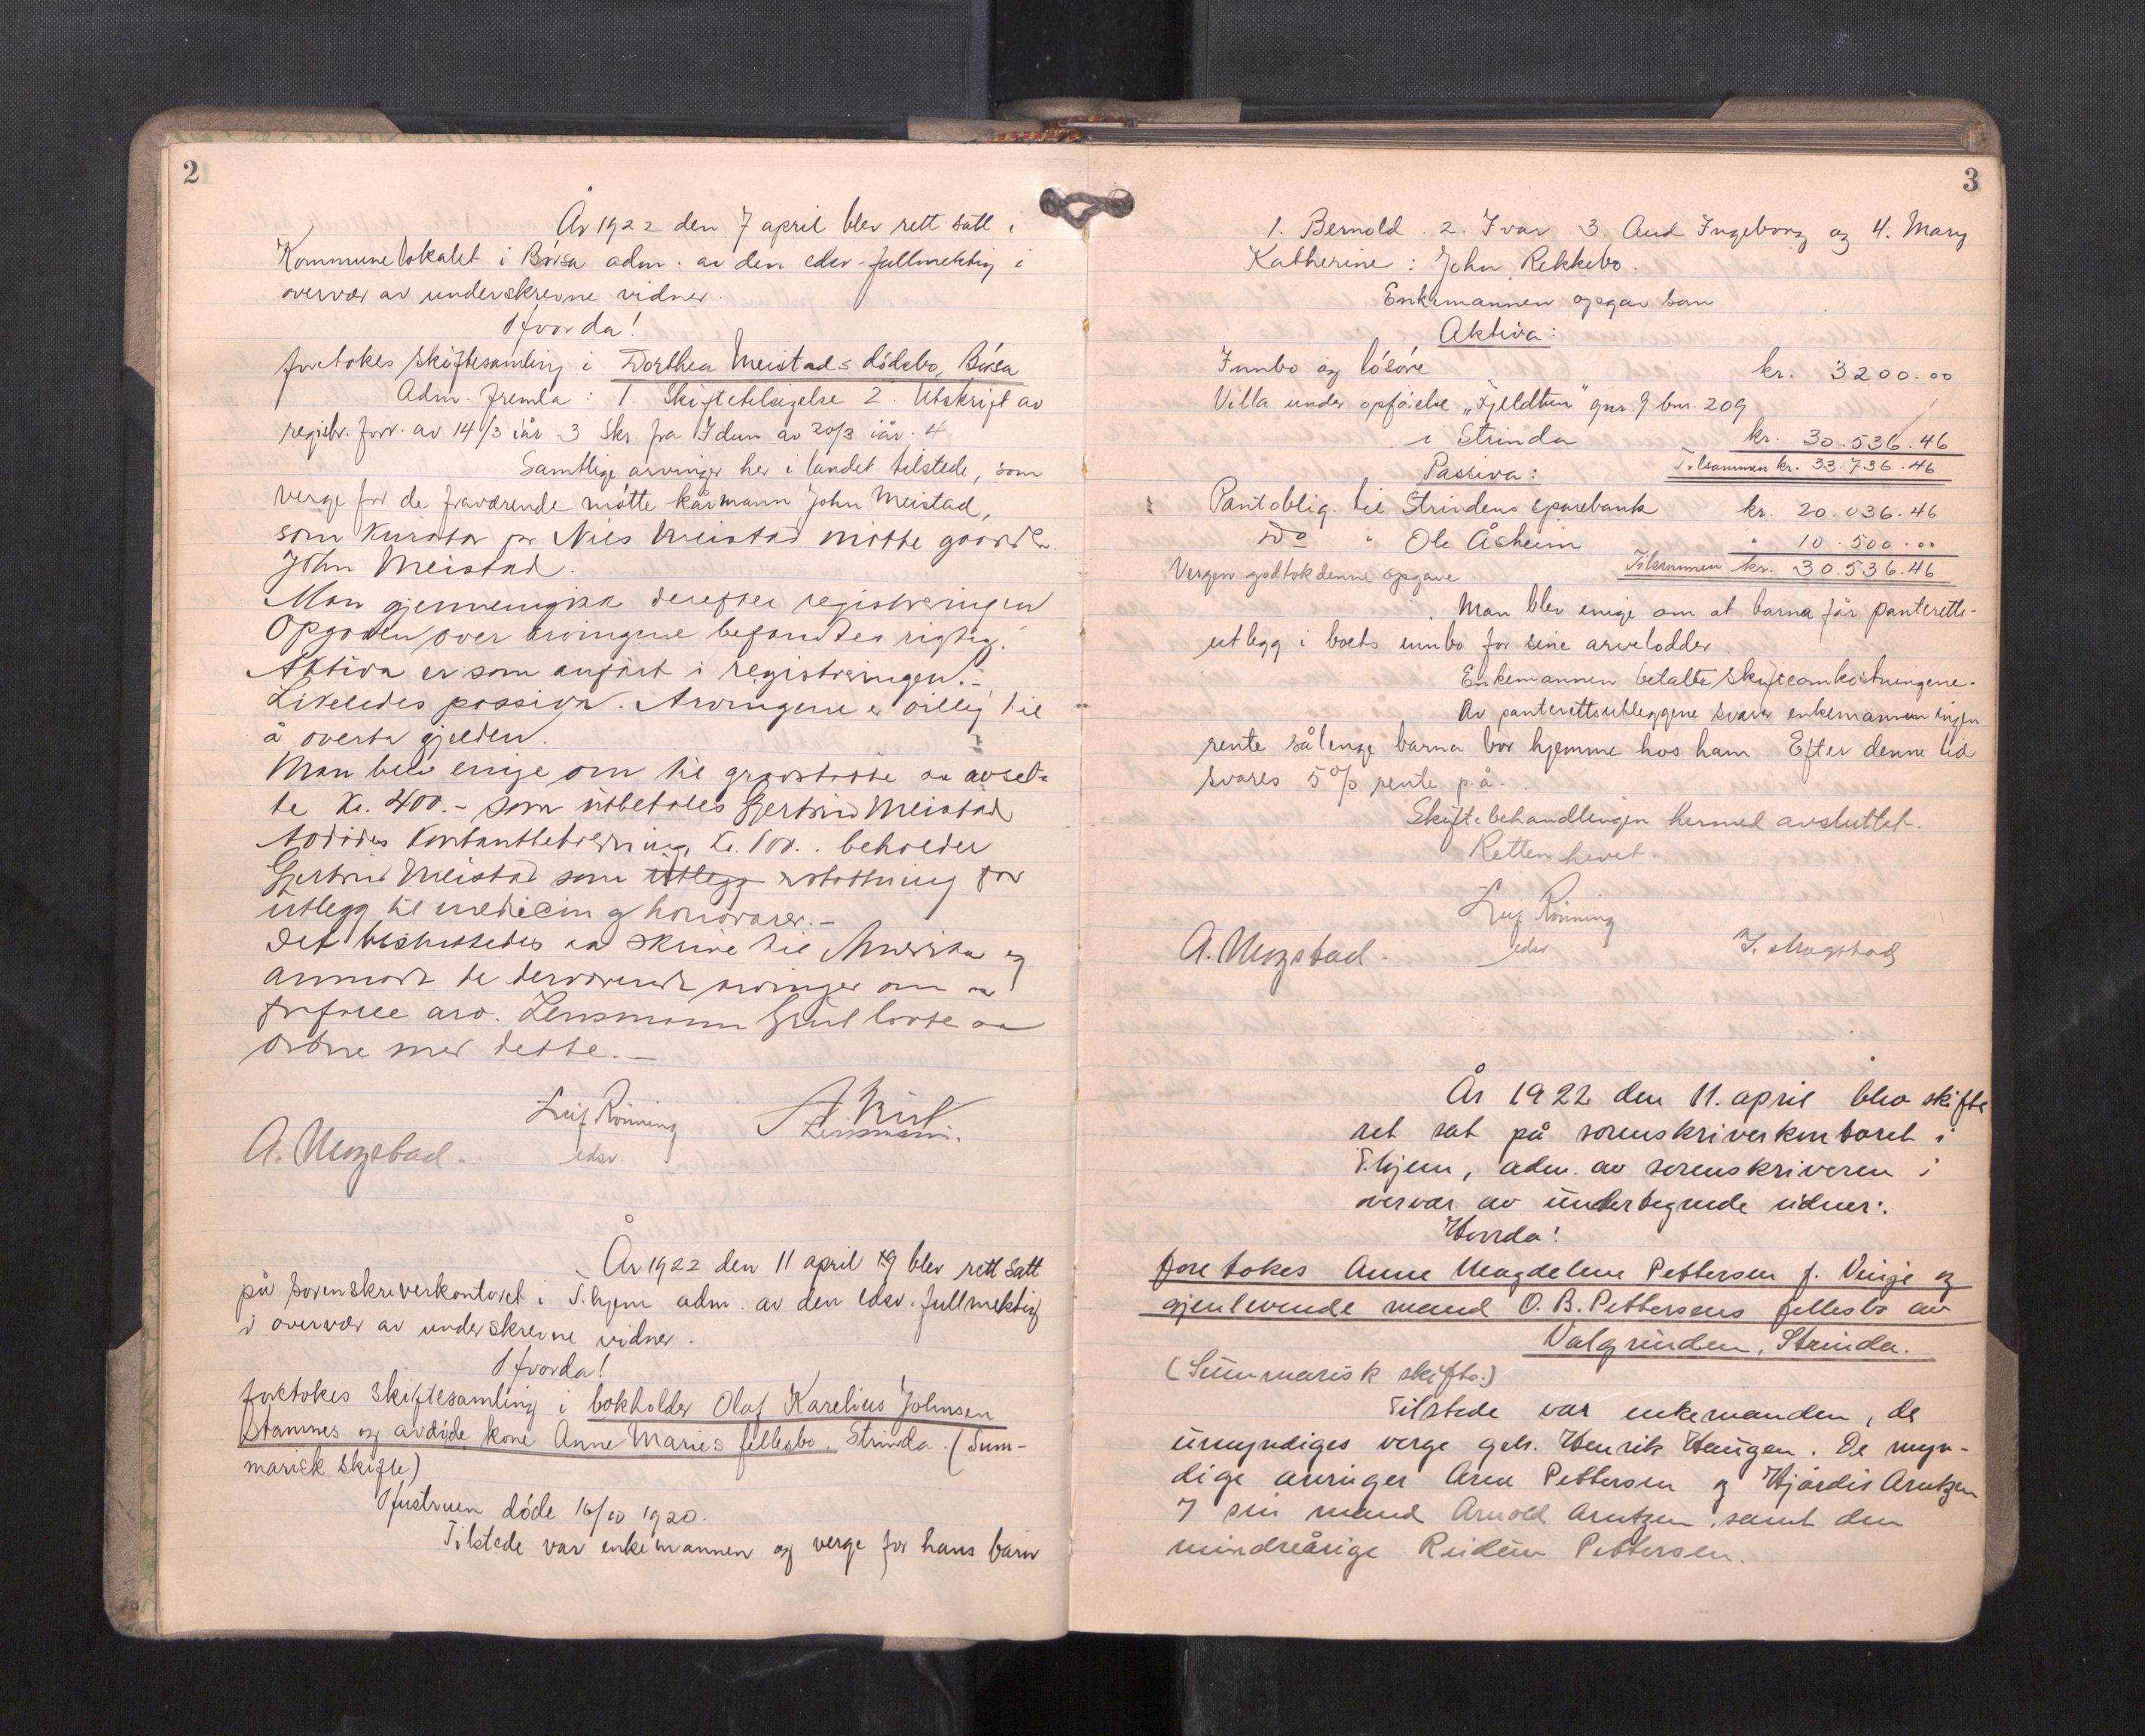 2
År 1922 den 7 april blev rett satt i
Kommunelokalet i Börsa adm. av den edsv. fullmektig i
overvær av underskrevne vidner.
Hvorda!
foretokes skiftesamling i Dorthea Meistads dödsbo, Börsa
Adm. fremla: 1. Skiftetilsigelse 2. Utskrift av
registr. forr. av 14/3 iår 3 Skr. fra Idun av 20/3 iår. 4
Samtlige arvinger her i landet tilstede, som
verge for de fraværende mötte kårmann John Meistad,
som kurator for Nils Meistad mötte gaardbr.
John Meistad.
Man gjennemgikk derefter registreringen
Opgaven over arvingene befandtes rigtig.
Aktiva er som anfört i registreringen.-
Likeledes passiva. Arvingene er villig til
å overta gjælden.
Man blev enige om til gravstötte aa avset-
te Kr. 400.- som utbetales Gjertrud Meistad
Avdödes kontantbeholdning, Kr. 100.- beholder
Gjertrud Meistad som utlegg erstattning for
utlegg til medicin og honorarer.-
Det besluttedes aa skrive til Amerika og
anmode de derværende arvinger om aa
frafalle arv. Lensmann Krul lovte aa
ordne med dette.-
Leif Rönning
edsv.
Lensmann.
A. Mogstad.
År 1922 den 11 april 19 blev rett satt
på sorenskriverkontoret i T.hjem adm. av den edsv. fullmektig
i overvær av underskrevne vidner.
Hvorda!
foretokes skiftesamling i bokholder Olaf Karelius Johnsen
Stamnes og avdöde kone Anne Maries fellesbo, Strinda. (Sum-
marisk skifte)
Hustruen döde 16/10 1920.
Tilstede var enkemannen og verge for hans barn
3
1. Bernold. 2. Ivar 3. Aud Ingeborg og 4. Mary
Katherine: John Rekkebo.
Enkemannen opgav som
Aktiva:
Innbo og lösöre kr. 3200.00
Villa under opförelse "Fjeldtun" gnr. 9 bnr. 209
i Strinda kr. 30.536.46
Tilsammen kr. 33.736.46
Passiva:
Pantoblig. til Strindens sparebank kr. 20.036.46
Do " Ole Åsheim " 10.500.00
Vergen godtok denne opgave Tilsammen kr. 30.536.46
Man blev enige om at barna får panteretts-
utlegg i boets innbo for sine arvelodder.
Enkemannen betalte skifteomkostningene.
Av panterettsutleggene svarer enkemannen ingen
rente sålenge barna bor hjemme hos ham Efter denne tid
svares 5% rente p.å.
Skiftebehandlingen hermed avsluttet.
Retten hevet.
Leif Rönning
edsv.
A. Mogstad. I. Mogstad
År 1922 den 11. april blev skifte
ret sat på sorenskriverkontoret i
T.hjem, adm. av sorenskriveren i
overvær av undertegnede vidner:.
Hvorda!
foretokes Anne Magdelene Pettersen f. Vinje og
gjenlevende mand O. B. Pettersens fellesbo av
Valgrinden, Strinda.
(Summarisk skifte.)
Tilstede var enkemanden, de
umyndiges verge gdr. Henrik Haugen. De myn-
dige arvinger Arne Pettersen og Hjördis Arntzen
v/ sin mand Arnold Arntzen, samt den
mindreårige Reidun Pettersen.